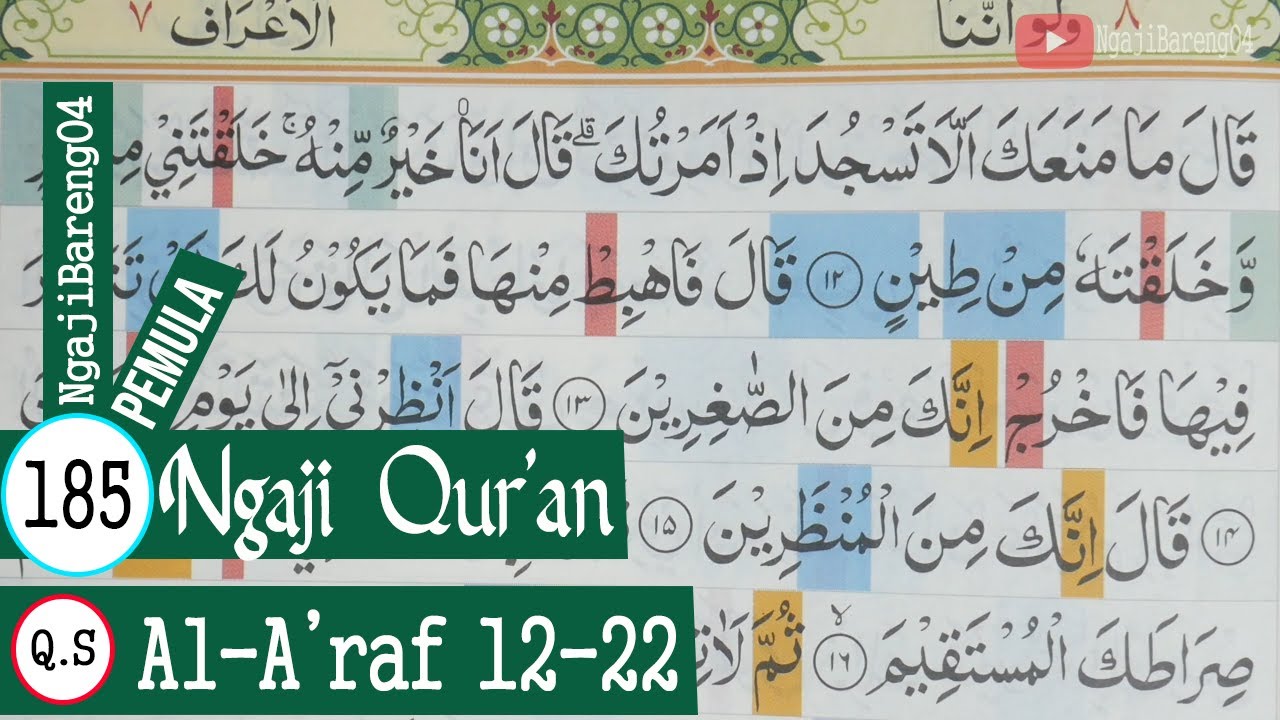 الاعراف ٧
ولو اننا ٨
NgajiBareng04
قَالَ مَا مَنَعَكَ اَلَّا تَسْجُدَ اِذْ اَمَرْتُكَ ۗ قَالَ اَنَا۠ خَيْرٌ مِّنْهُ ۚ خَلَقْتَنِيْ
وَّخَلَقْتَهٗ مِنْ طِيْنٍ ١٢ قَالَ فَاهْبِطْ مِنْهَا فَمَا يَكُوْنُ
فِيْهَا فَاخْرُجْ اِنَّكَ مِنَ الصّٰغِرِيْنَ ١٣ قَالَ اَنْظِرْنِيْٓ اِلٰى يَوْمِ
١٤ قَالَ اِنَّكَ مِنَ الْمُنْظَرِيْنَ ١٥
صِرَاطَكَ الْمُسْتَقِيْمَ ۙ ١٦ ثُمَّ
NgajiBareng04
PEMULA
185 Ngaji Qur'an
Q.S Al-A'raf 12-22